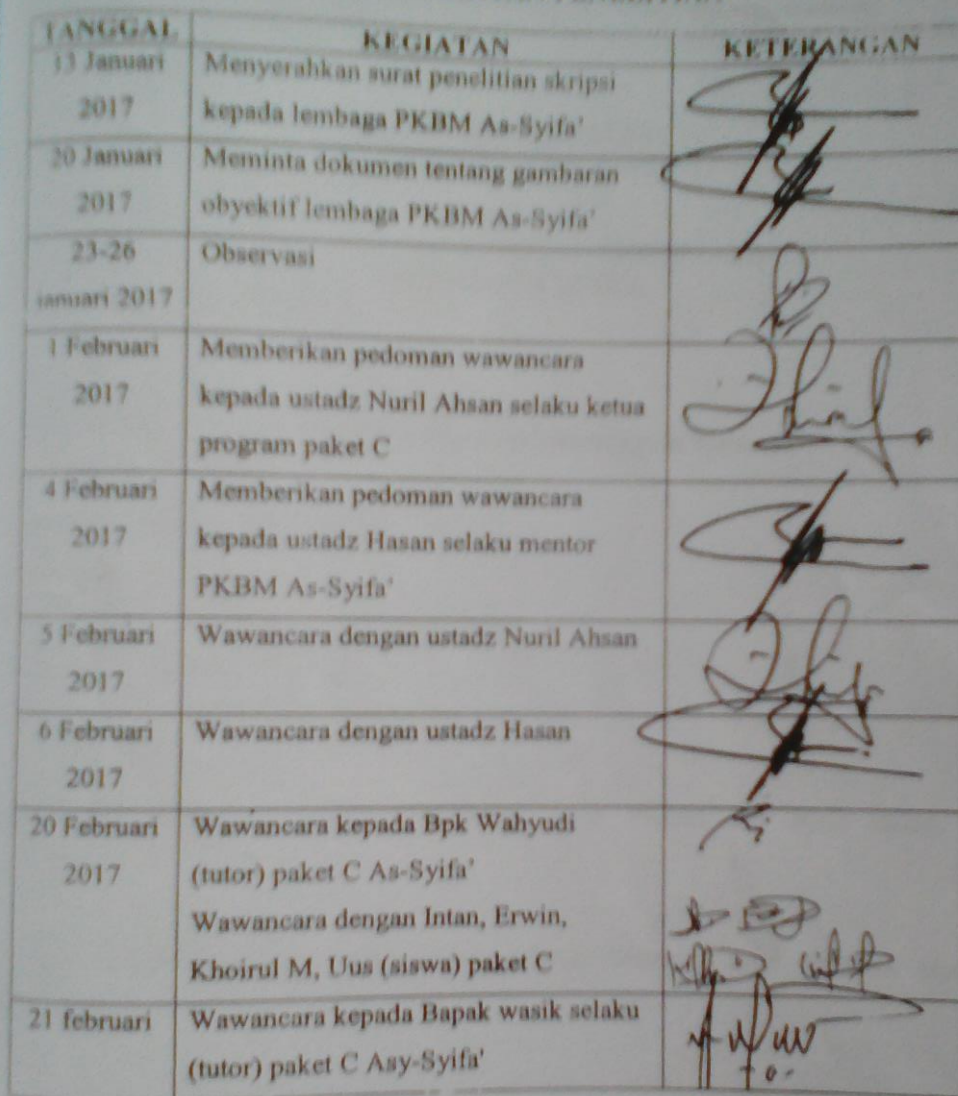 TANGGAL KEGIATAN KETERANGAN
13 Januari Menyerahkan surat penelitian skripsi
2017 kepada lembaga PKBM As-Syifa'
20 Januari Meminta dokumen tentang gambaran
2017 obyektif lembaga PKBM As-Syifa'
23-26 Observasi
januari 2017
1 Februari Memberikan pedoman wawancara
2017 kepada ustadz Nuril Ahsan selaku ketua
program paket C
4 Februari Memberikan pedoman wawancara
2017 kepada ustadz Hasan selaku mentor
PKBM As-Syifa'
5 Februari Wawancara dengan ustadz Nuril Ahsan
2017
6 Februari Wawancara dengan ustadz Hasan
2017
20 Februari Wawancara kepada Bpk Wahyudi
2017 (tutor) paket C As-Syifa'
Wawancara dengan Intan, Erwin,
Khoirul M, Uus (siswa) paket C
21 februari Wawancara kepada Bapak wasik selaku
(tutor) paket C Asy-Syifa'